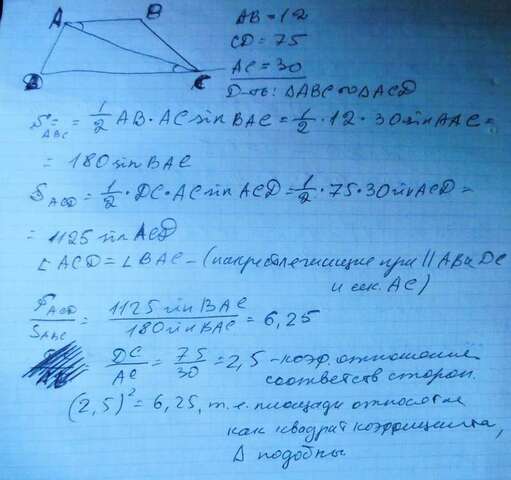 A B
D C
AB = 12
CD = 75
AC = 30
D-ть: ΔABC ∾ ΔACD
S ABC = 1/2 AB · AC sin BAC = 1/2 · 12 · 30 sin BAC =
= 180 sin BAC
S ACD = 1/2 · DC · AC sin ACD = 1/2 · 75 · 30 sin ACD =
= 1125 sin ACD
∠ ACD = ∠ BAC - (накрест лежищие при || AB и DC
и сек. AC)
S ACD / S ABC = 1125 sin BAC / 180 sin BAC = 6,25
DC / AC = 75 / 30 = 2,5 - коэф. отношение
соответств сторон.
(2,5)² = 6,25, т.е. площади относятся
как квадрат коэффициента,
Δ подобны